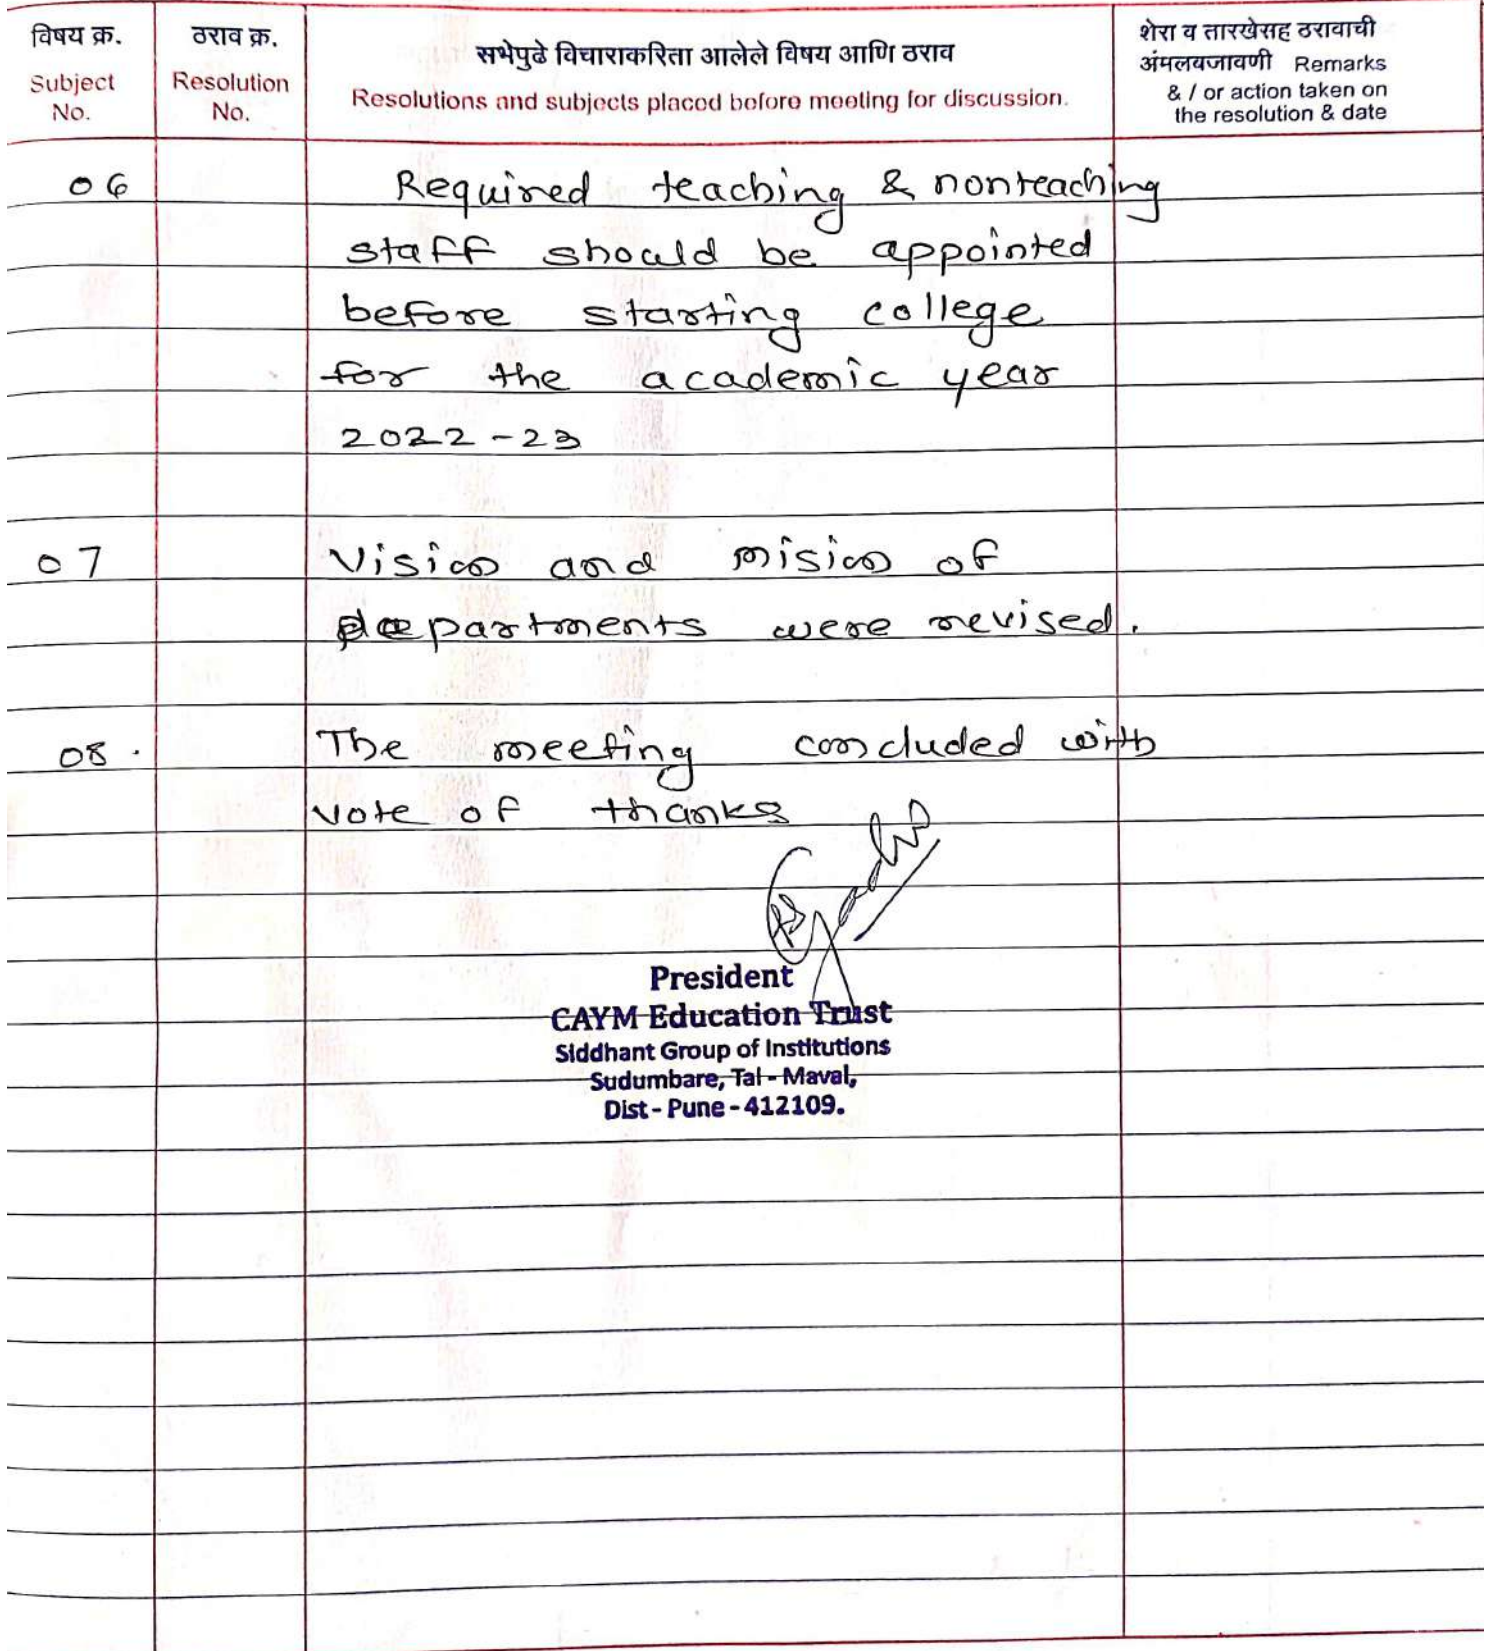 विषय क्र.
Subject
No.
ठराव क्र.
Resolution
No.
सभेपुढे विचाराकरिता आलेले विषय आणि ठराव
Resolutions and subjects placed before meeting for discussion.
शेरा व तारखेसह ठरावाची
अंमलयजावणी Remarks
& / or action taken on
the resolution & date
06 Required teaching & nonteaching
staff should be appointed
before starting college
for the academic year
2022-23
07 Vision and mision of
departments were revised.
08. The meeting concluded with
vote of thanks
President
CAYM Education Trust
Siddhant Group of Institutions
Sudumbare, Tal - Maval,
Dist - Pune - 412109.